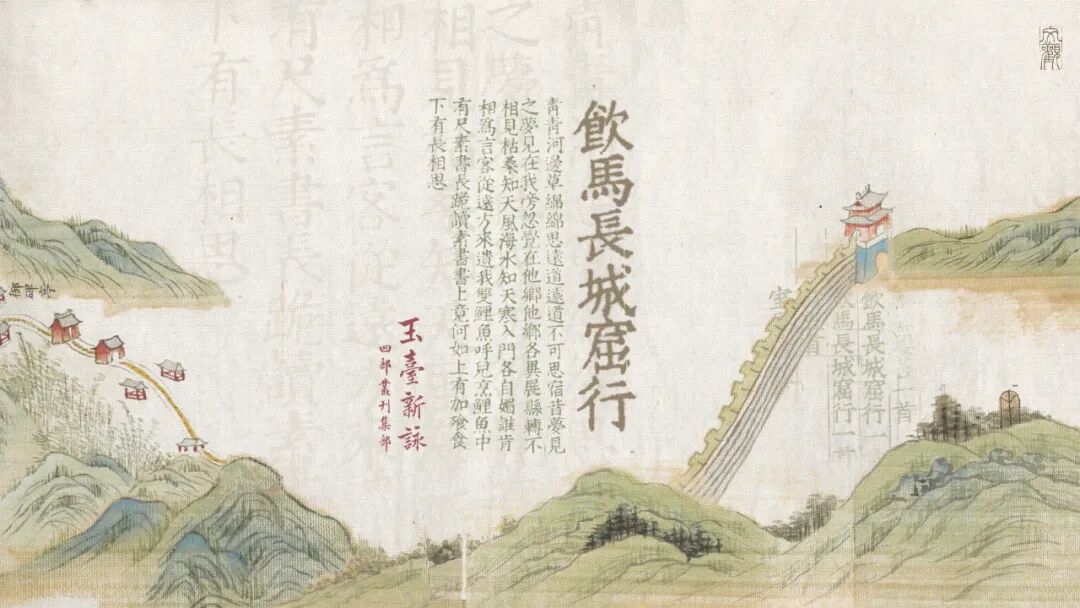 飲馬長城窟行
靑靑河邊草綿綿思遠道遠道不可思宿昔夢見
之夢見在我旁忽覺在他鄉他鄉各異展縣轉不
相見枯桑知天風海水知天寒入門各自媚誰肯
相爲言客從遠方來遺我雙鯉魚呼兒烹鯉魚中
有尺素書長跪讀素書書上竟何如上有加飱食
下有長相思
玉臺新詠
四部叢刊集部
上首
飲馬長城窟行一
馬長城窟行一首
之夢
相見
相爲言客從遠
有尺素書長跪讀素
下有長相思